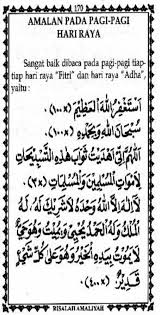 170
AMALAN PADA PAGI-PAGI
HARI RAYA
Sangat baik dibaca pada pagi-pagi tiap-
tiap hari raya "Fitri" dan hari raya "Adha",
yaitu :
اَسْتَغْفِرُ اللهَ الْعَظِيْمَ (١٠٠×).
سُبْحَانَ اللهِ وَبِحَمْدِهِ (١٠٠×).
اَللّٰهُمَّ اِنِّى اَهْدَيْتُ ثَوَابَ هٰذِهِ التَّسْبِيْحَاتِ
لِأَمْوَاتِ الْمُسْلِمِيْنَ وَالْمُسْلِمَاتِ (٣×)
لَا اِلٰهَ اِلَّا اللهُ وَحْدَهُ لَا شَرِيْكَ لَهُ، لَهُ
الْمُلْكُ وَلَهُ الْحَمْدُ يُحْيِيْ وَيُمِيْتُ وَهُوَ حَيٌّ
لَا يَمُوْتُ بِيَدِهِ الْخَيْرُ وَهُوَ عَلَى كُلِّ شَيْءٍ
قَدِيْرٌ (٤٠٠×)
RISALAH AMALIYAH